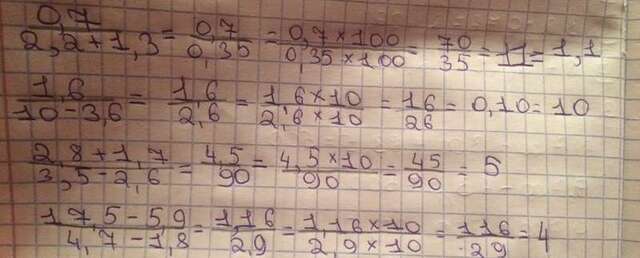 0,7/2,2+1,3 = 0,7/0,35 = 0,7×100/0,35×100 = 70/35 = 11 = 1,1
1,6/10-3,6 = 1,6/2,6 = 1,6×10/2,6×10 = 16/26 = 0,10 = 10
2,8+1,7/3,5-2,6 = 4,5/90 = 4,5×10/90 = 45/90 = 5
17,5-5,9/4,7-1,8 = 1,16/2,9 = 1,16×10/2,9×10 = 116/29 = 4